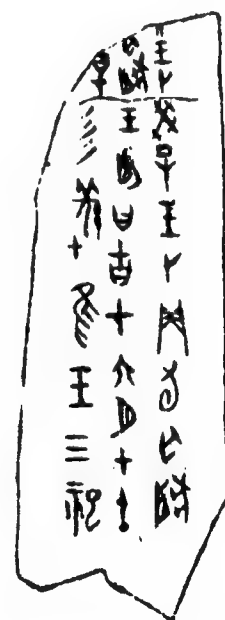 王卜
癸巳王卜貞旬亡𡆥
王占曰吉在六月甲午
彡羌甲隹王三祀